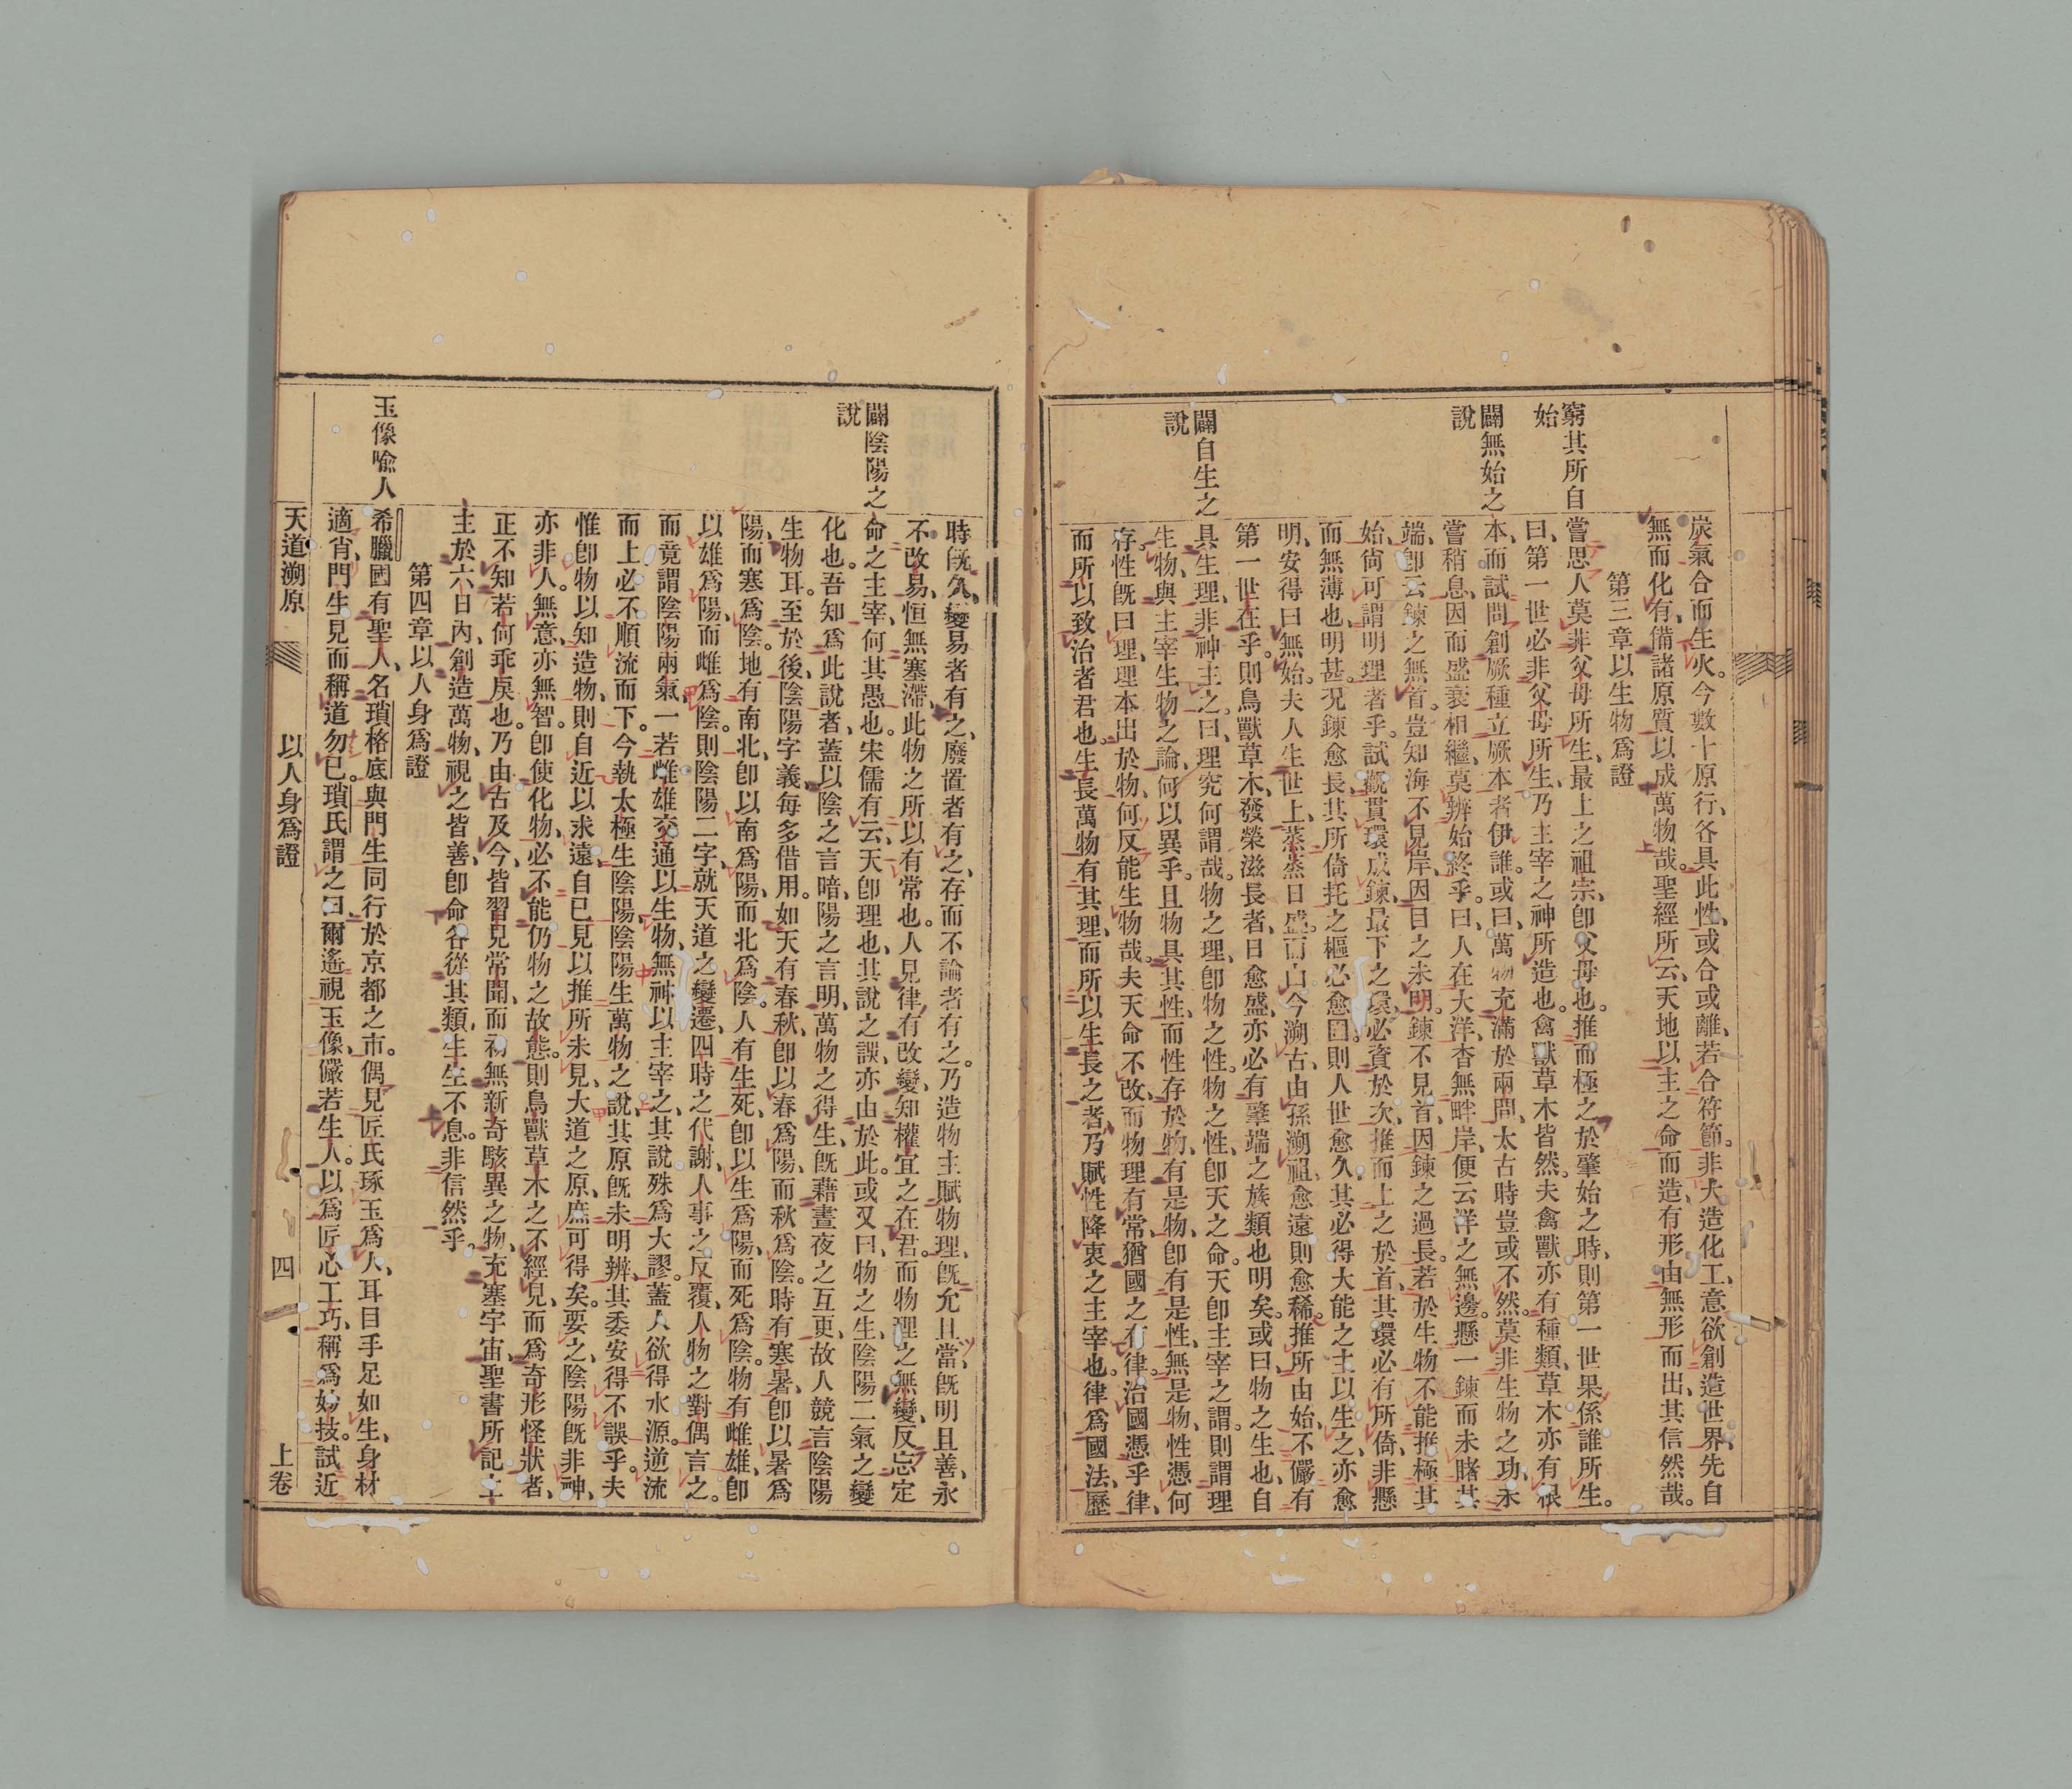 炭氣合而生火。今數十原行、各具此性、或合或離、若合符節。非大造化工、意欲創造世界、先自
無而化有、備諸原質、以成萬物哉。聖經所云、天地以主之命而造、有形由無形而出、其信然哉。
第三章以生物爲證
窮其所自
始
嘗思人莫非父母所生、最上之祖宗、卽父母也。推而極之於肇始之時、則第一世果係誰所生。
曰、第一世必非父母所生、乃主宰之神所造也。禽獸草木皆然、夫禽獸亦有種類、草木亦有根
闢無始之
說
本、而試問創厥種立厥本者伊誰。或曰、萬物充滿於兩間、太古時豈或不然。莫非生物之功、永
嘗稍息、因而盛衰相繼、莫辨始終乎。曰、人在大洋、杳無畔岸、便云洋之無邊。懸一鍊而未睹其
端、卽云鍊之無首。豈知海不見岸、因目之未明。鍊不見首、因鍊之過長。若於生物不能推極其
始、尙可謂明理者乎。試觀貫環成鍊、最下之環、必資於次、推而上之於首、其環必有所倚、非懸
而無薄也、明甚。况鍊愈長、其所倚托之樞必愈固。則人世愈久、其必得大能之主以生之、亦愈
明、安得曰無始。夫人生世上、蒸蒸日盛。而由今溯古、由孫溯祖、愈遠則愈稀。推所由始、不儼有
第一世在乎。則鳥獸草木、發榮滋長者、日愈盛、亦必有肇端之族類也明矣。或曰、物之生也、自
闢自生之
說
具生理、非神主之。曰、理究何謂哉。物之理、卽物之性。物之性、卽天之命。天卽主宰之謂。則謂理
生物、與主宰生物之論、何以異乎。且物具其性、而性存於物、有是物、卽有是性、無是物、性憑何
存。性旣曰理、理本出於物、何反能生物哉。夫天命不改、而物理有常、猶國之有律。治國憑乎律、
而所以致治者君也。生長萬物有其理、而所以生長之者、乃賦性降衷之主宰也。律爲國法、歷
時旣久、變易者有之、廢置者有之、存而不論者有之。乃造物主賦物理、旣允且當、旣明且善、永
不改易、恒無塞滯、此物之所以有常也。人見律有改變、知權宜之在君。而物理之無變、反忘定
闢陰陽之
說
命之主宰、何其愚也。宋儒有云、天卽理也、其說之誤、亦由於此。或又曰、物之生、陰陽二氣之變
化也。吾知爲此說者、蓋以陰之言暗、陽之言明、萬物之得生、旣藉晝夜之互更、故人競言陰陽
生物耳。至於後、陰陽字義、每多借用。如天有春秋、卽以春爲陽、而秋爲陰。時有寒暑、卽以暑爲
陽、而寒爲陰。地有南北、卽以南爲陽、而北爲陰。人有生死、卽以生爲陽、而死爲陰。物有雌雄、卽
以雄爲陽、而雌爲陰。則陰陽二字、就天道之變遷、四時之代謝、人事之反覆、人物之對偶言之。
而竟謂陰陽兩氣、一若雌雄交通以生物、無神以主宰之、其說殊爲大謬。蓋人欲得水源、逆流
而上、必不順流而下。今執太極生陰陽、陰陽生萬物之說、其原旣未明辨、其委安得不誤乎。夫
惟卽物以知造物、則自近以求遠、自已見以推所未見、大道之原、庶可得矣。要之、陰陽旣非神、
亦非人。無意亦無智。卽使化物、必不能仍物之故態。則鳥獸草木之不經見、而爲奇形怪狀者、
正不知若何乖戾也。乃由古及今、皆習見常聞、而初無新奇駭異之物、充塞宇宙、聖書所記、上
主於六日內、創造萬物、視之皆善、卽命各從其類、生生不息。非信然乎。
第四章以人身爲證
玉像喻人
希臘國有聖人、名瑣格底、與門生同行於京都之市。偶見匠氏琢玉爲人、耳目手足如生、身材
適肖、門生見而稱道勿已。瑣氏謂之曰、爾遙視玉像、儼若生人。以爲匠心工巧、稱爲妙技。試近
天道溯原
以人身爲證
四
上卷